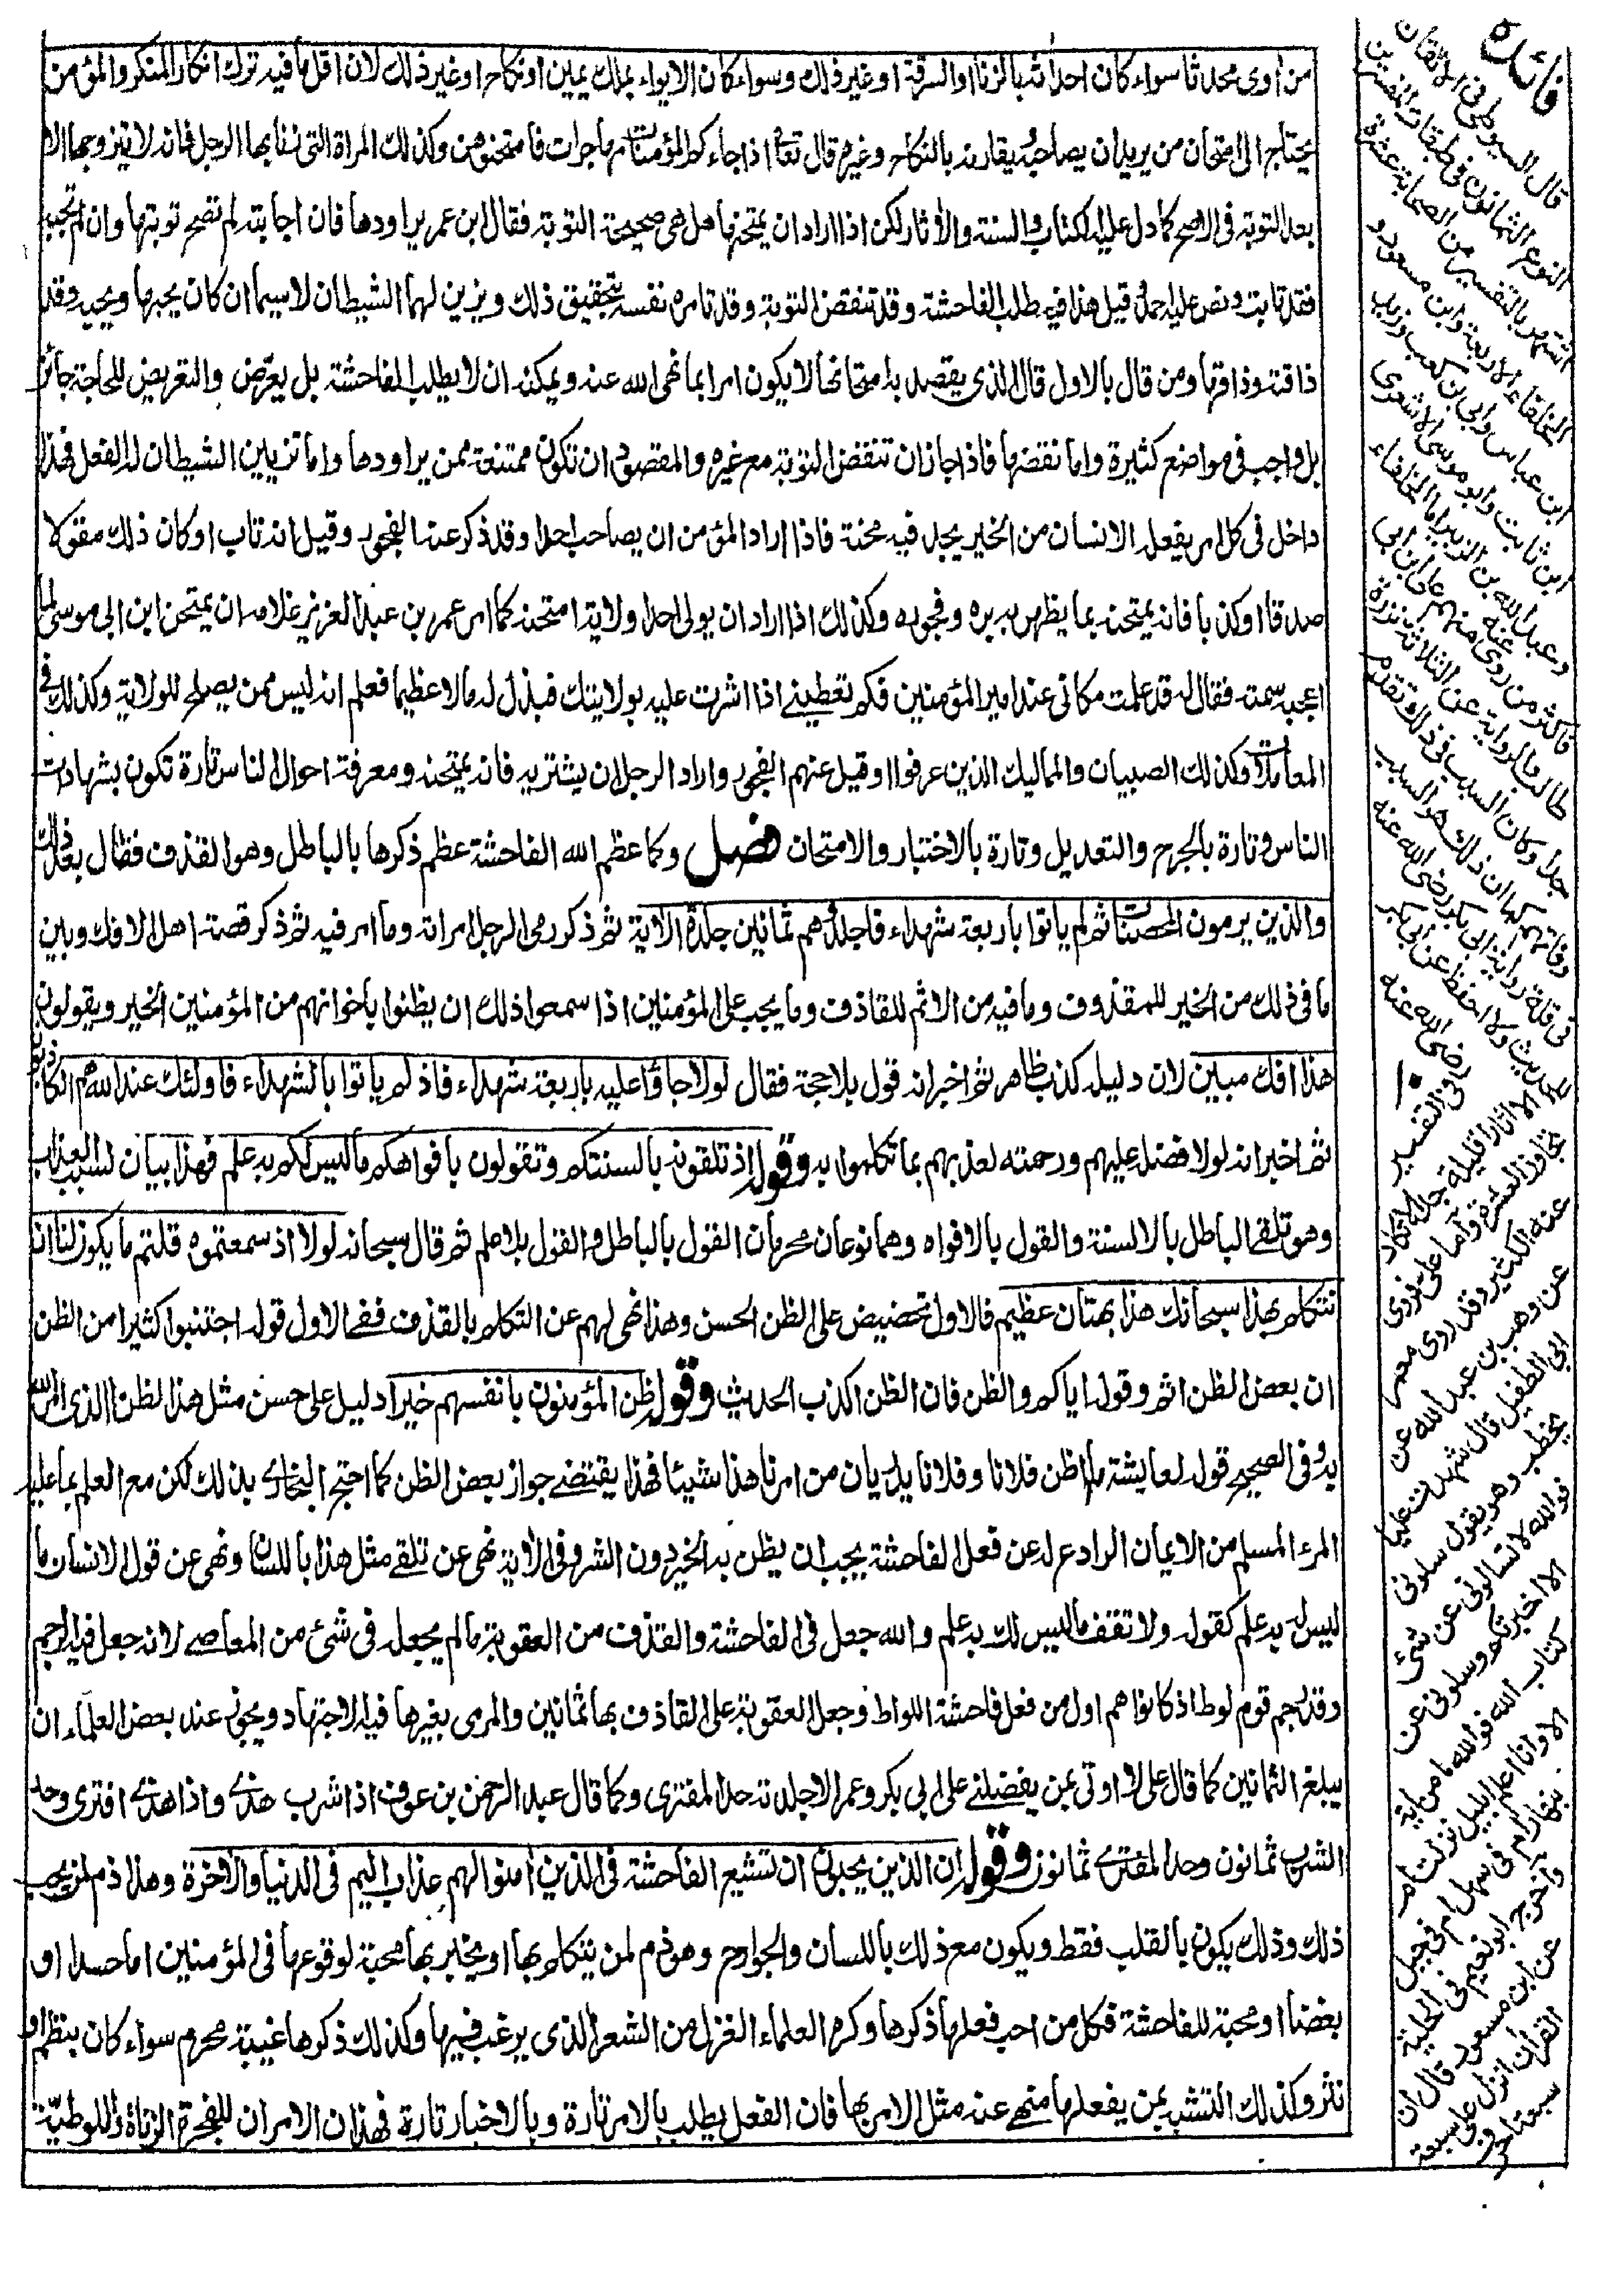 من اوى محدثا سواء كان احداثه بالزنا او السرقة او غير ذلك وسواء كان الايواء بملك يمين او نكاح او غير ذلك لان اقل ما فيه ترك انكار المنكر والمؤمن
يحتاج الى امتحان من يريد ان يصاحبه يقارنه بالنكاح وغيره قال تعا اذا جاءكم المؤمنات مهاجرات فامتحنوهن وكذلك المراة التى زنا بها الرجل فانه لا يتزوجها الا
بعد التوبة فى الاصح كما دل عليه الكتاب والسنة والأثار لكن اذا اراد ان يمتحنها هل هى صحيحة التوبة فقال ابن عمر يراودها فان اجابته لم تصح توبتها وان لم تجبه
فقد تابت ونص عليه احمد قيل هذا فيه طلب الفاحشة وقد تنقض التوبة وقد تامره نفسه بتحقيق ذلك ويزين لهما الشيطان لاسيما ان كان يحبها وتحبه وقد
ذاقته وذاقها ومن قال بالاول قال الذى يقصد به امتحانها لا يكون امرا بما نهى الله عنه ويمكنه ان لا يطلب الفاحشة بل يعرّض والتعريض للحاجة جائز
بل واجب فى مواضع كثيرة واما نقضها فاذا جاز ان تنقض التوبة مع غيره والمقصود ان تكون ممتنعة ممن يراودها واما تزيين الشيطان له الفعل فهذا
داخل فى كل امر يفعله الانسان من الخير يجد فيه محنة فاذا اراد المؤمن ان يصاحب احدا وقد ذكر عنه الفجور وقيل انه تاب او كان ذلك مقولا
صدقا او كذبا فانه يمتحنه بما يظهر به بره وفجوره وكذلك اذا اراد ان يولى احدا ولاية امتحنه كما امر عمر بن عبد العزيز غلامه ان يمتحن ابن ابى موسى لما
اعجبه سمته فقال له قد علمت مكانى عند امير المؤمنين فكم تعطينے اذا اشرت عليه بولايتك فبذل له مالا عظيما فعلم انه ليس ممن يصلح للولاية وكذلك فى
المعاملات وكذلك الصبيان والمماليك الذين عرفوا او قيل عنهم الفجور واراد الرجل ان يشتريه فانه يمتحنه ومعرفة احوال الناس تارة تكون بشهادات
الناس وتارة بالجرح والتعديل وتارة بالاختبار والامتحان فصل وكما عظم الله الفاحشة عظم ذكرها بالباطل وهو القذف فقال بعد ذلك
والذين يرمون المحصنات ثم لم ياتوا باربعة شهداء فاجلدوهم ثمانين جلدة الأية ثم ذكر رمى الرجل امراته وما امر فيه ثم ذكر قصة اهل الافك وبين
ما فى ذلك من الخير للمقذوف وما فيه من الاثم للقاذف وما يجب على المؤمنين اذا سمعوا ذلك ان يظنوا باخوانهم من المؤمنين الخير ويقولون
هذا افك مبين لان دليله كذب ظاهر ثم اخبر انه قول بلا حجة فقال لولا جاؤا عليه باربعة شهداء فاذ لم ياتوا بالشهداء فاولئك عند الله هم الكاذبون
ثم اخبر انه لولا فضله عليهم ورحمته لعذبهم بما تكلموا به وقوله اذ تلقونه بالسنتكم وتقولون بافواهكم ما ليس لكم به علم فهذا بيان لسبب العذاب
وهو تلقى الباطل بالالسنة والقول بالافواه وهما نوعان محرمان القول بالباطل والقول بلا علم ثم قال سبحانه لولا اذ سمعتموه قلتم ما يكون لنا ان
نتكلم بهذا سبحانك هذا بهتان عظيم فالاول تحضيض على الظن الحسن وهذا نهى لهم عن التكلم بالقذف ففى الاول قوله اجتنبوا كثيرا من الظن
ان بعض الظن اثم وقوله اياكم والظن فان الظن اكذب الحديث وقوله ظن المؤمنون بانفسهم خيرا دليل على حسن مثل هذا الظن الذى امر الله
به وفى الصحيح قوله لعايشة ما اظن فلانا وفلانا يدريان من امرنا هذا شيئا فهذا يقتضے جواز بعض الظن كما احتج البخارى بذلك لكن مع العلم بما عليه
المرء المسلم من الايمان الرادع له عن فعل الفاحشة يجب ان يظن به الخير دون الشر وفى الاية نهى عن تلقے مثل هذا باللسان ونهى عن قول الانسان ما
ليس له به علم كقوله ولا تقف ما ليس لك به علم والله جعل فى الفاحشة والقذف من العقوبة ما لم يجعله فى شئ من المعاصے لانه جعل فيه الرجم
وقد رجم قوم لوط اذ كانوا هم اول من فعل فاحشة اللواط وجعل العقوبة على القاذف بها ثمانين والرمى بغيرها فيه الاجتهاد ويجوز عند بعض العلماء ان
يبلغ الثمانين كما قال على لا اوتى بمن يفضلنے على ابى بكر وعمر الا جلدته حد المفترى وكما قال عبد الرحمن بن عوف اذا شرب هذى واذا هذى افترى وحد
الشرب ثمانون وحد المفترى ثمانون وقوله ان الذين يحبون ان تشيع الفاحشة فى الذين امنوا لهم عذاب اليم فى الدنيا والأخرة وهذا ذم لمن يحب
ذلك وذلك يكون بالقلب فقط ويكون مع ذلك باللسان والجوارح وهو ذم لمن يتكلم بها او يخبر بها محبة لوقوعها فى المؤمنين اما حسدا او
بغضا او محبة للفاحشة فكل من احب فعلها ذكرها وكره العلماء الغزل من الشعر الذى يرغب فيها وكذلك ذكرها غيبة محرم سواء كان بنظم او
نثر وكذلك التشبه بمن يفعلها منهے عنه مثل الامر بها فان الفعل يطلب بالامر تارة وبالاخبار تارة فهذان الامران للفجرة الزناة واللوطية
فائدة
قال السيوطى فى الاتقان
النوع الثمانون فى طبقات المفسرين
اشتهر بالتفسير من الصحابة عشرة
الخلفاء الأربعة وابن مسعود و
ابن عباس وابى بن كعب وزيد
ابن ثابت وابو موسى الاشعرى
وعبد الله بن الزبير اما الخلفاء
فاكثر من روى عنه منهم على ابن ابى
طالب والرواية عن الثلاثة نزرة
جدا وكان السبب فى ذلك تقدم
وفاتهم كما ان ذلك هو السبب
فى قلة رواية ابى بكر رضى الله عنه
للحديث ولا احفظ عن ابى بكر
رضى الله عنه
فى التفسير
الا اثارا قليلة جدا لا تكاد
تجاوز العشرة واما على فروى
عنه الكثير وقد روى معمر
عن وهب بن عبد الله عن
ابى الطفيل قال شهدت عليا
يخطب وهو يقول سلونى
فوالله لا تسالونى عن شئ
الا اخبرتكم وسلونى عن
كتاب الله فوالله ما من اية
الا وانا اعلم ابليل نزلت ام
بنهار ام فى سهل ام فى جبل
واخرج ابو نعيم فى الحلية
عن ابن مسعود قال ان
القرأن انزل على سبعة